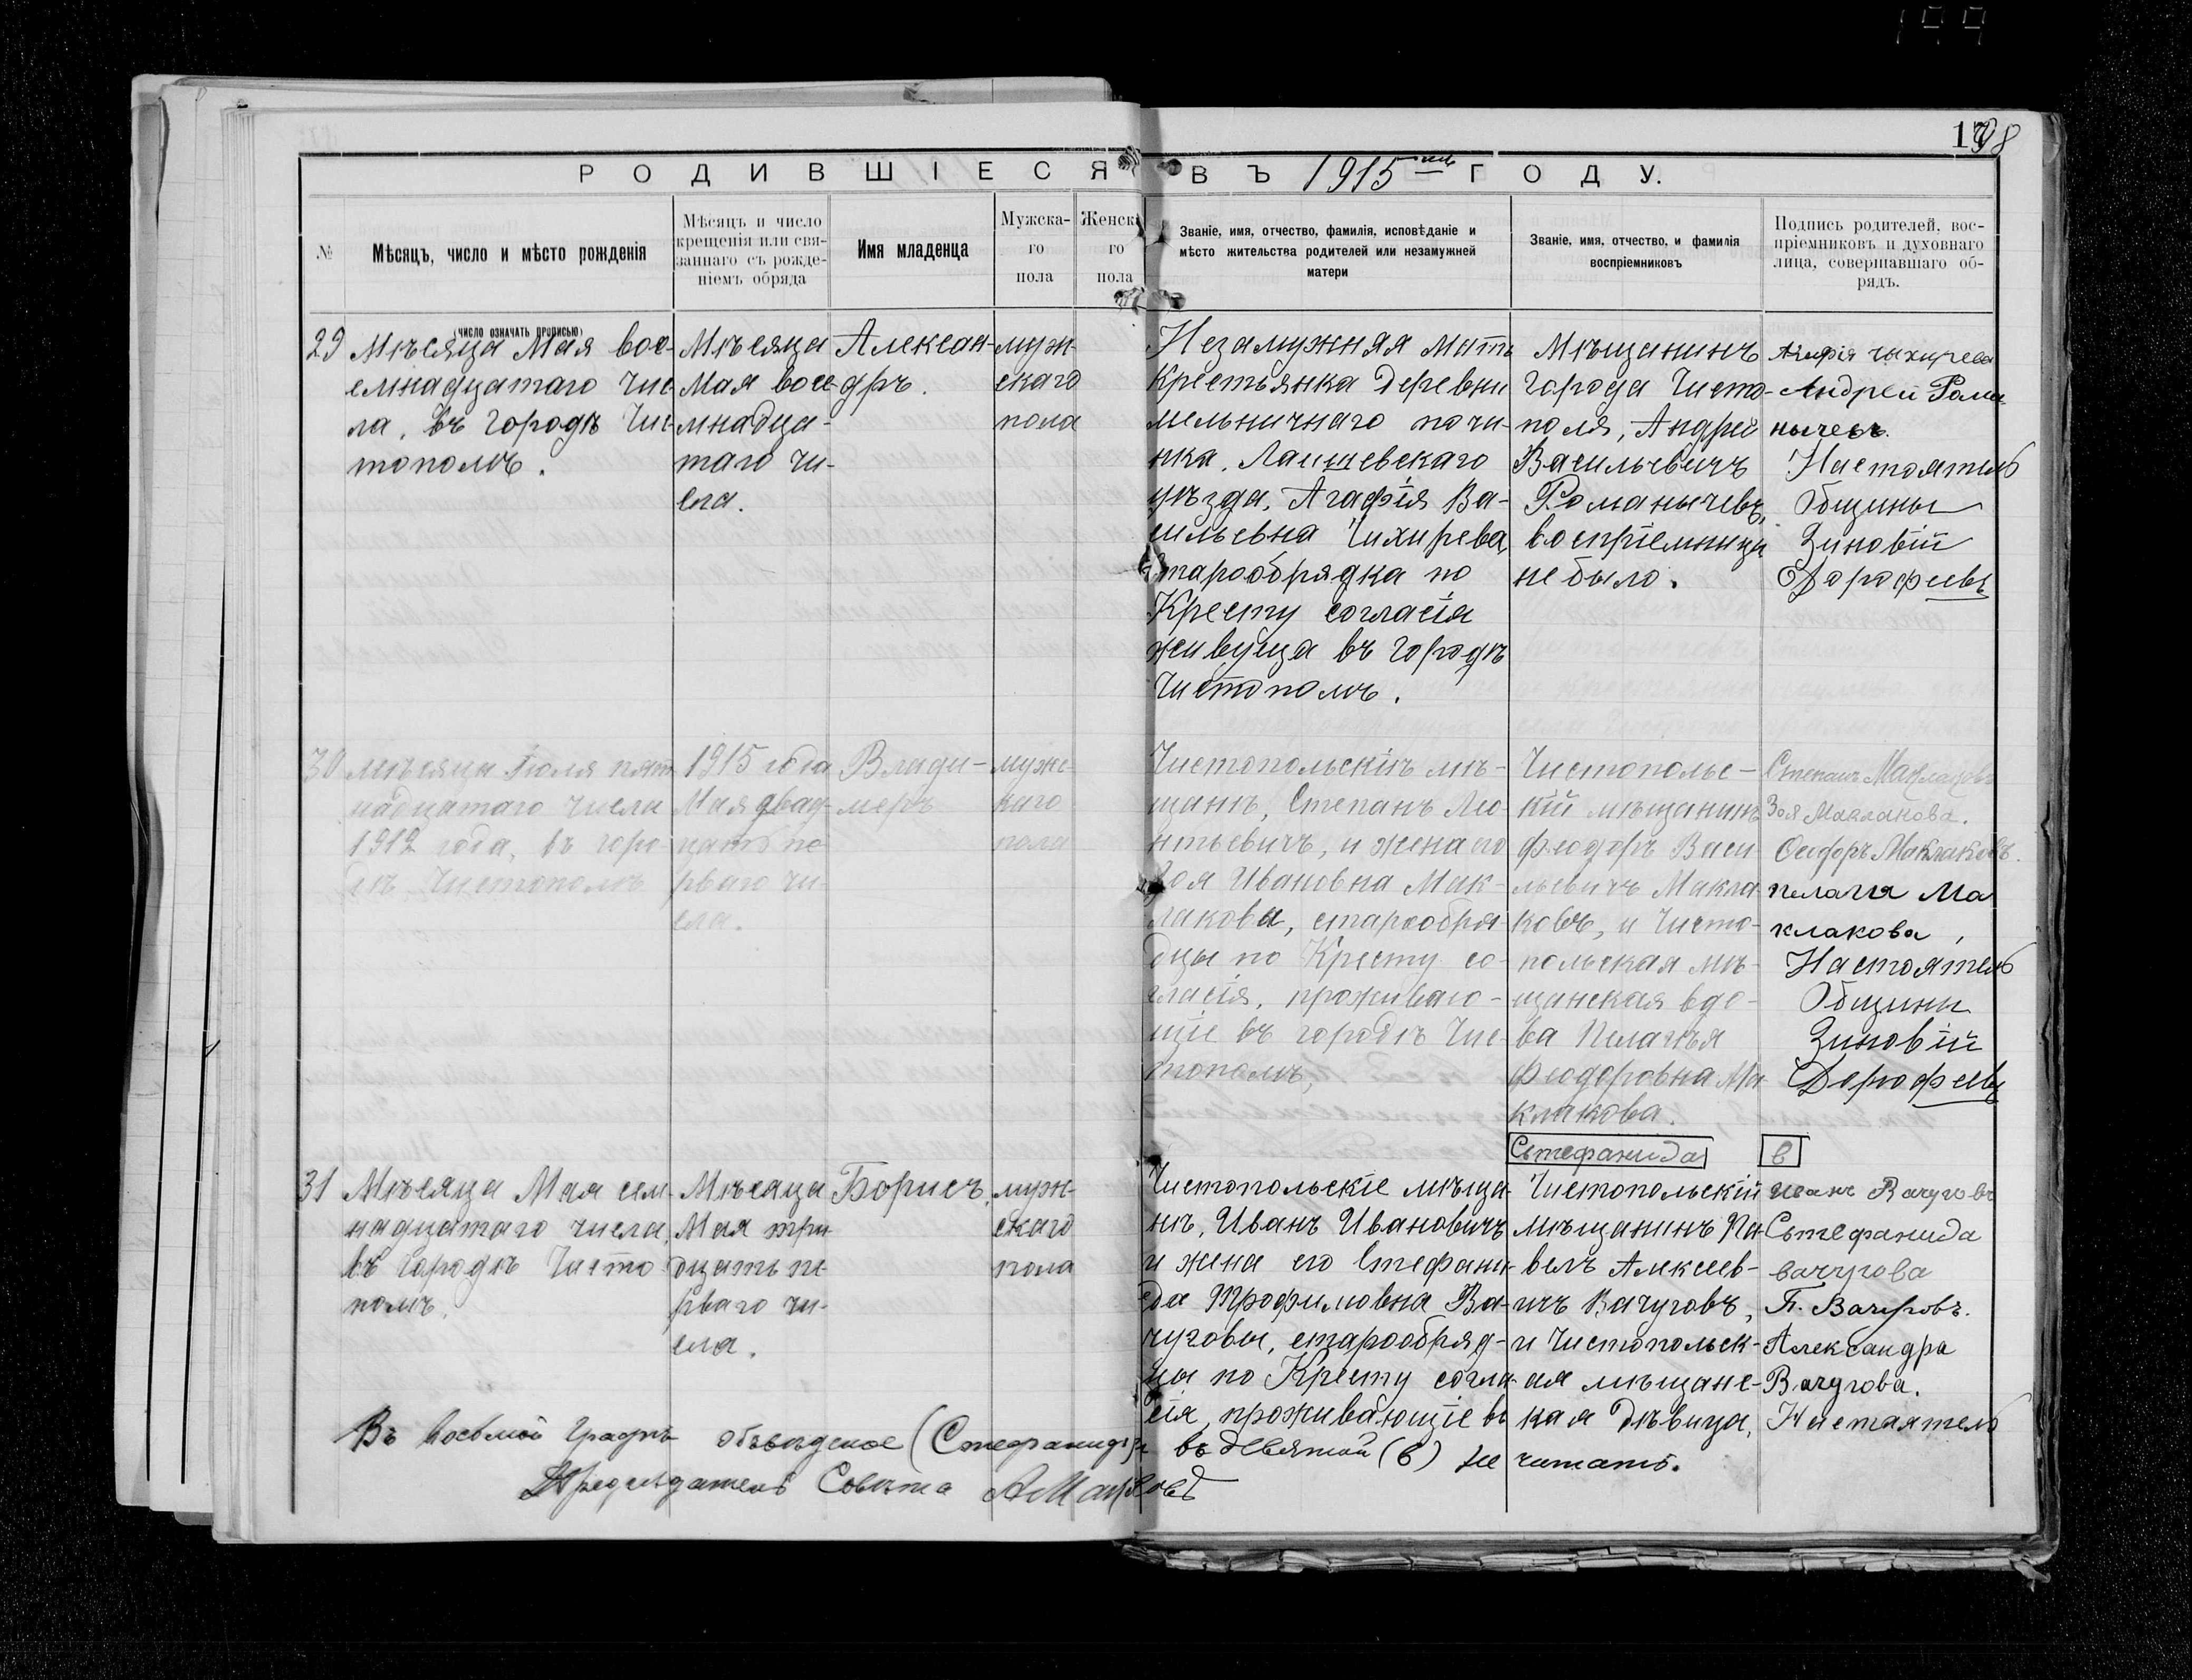 199
178
РОДИВШІЕСЯ ВЪ 1915мъ ГОДУ.
№
Мѣсяцъ, число и мѣсто рожденія
(число означать прописью)
Мѣсяцъ и число
крещенія или свя-
заннаго съ рожде-
ніемъ обряда
Имя младенца
Мужска-
го
пола
Женск
го
пола
Званіе, имя, отчество, фамилія, исповѣданіе и
мѣсто жительства родителей или незамужней
матери
Званіе, имя, отчество, и фамилія
воспріемниковъ
Подпись родителей, вос-
пріемниковъ и духовнаго
лица, совершавшаго об-
рядъ.
29
Мѣсяца Мая вос-
емнадцатаго чис
ла, въ городѣ Чис-
тополѣ.
Мѣсяца
Мая вос-
мнадца-
таго чи-
сла.
Алексан-
дръ.
муж-
скаго
пола
Незамужняя мать
крестьянка деревни
мельничнаго почи-
нка, Лаишевскаго
уѣзда, Агафія Ва-
сильевна Чихирева,
старообрядка по
Кресту согласія
живуща въ городѣ
Чистополѣ.
Мѣщанинъ
города Чисто-
поля, Андрей
Васильевичъ
Романычевъ,
воспріемницы
не было.
Агафія чихирева
Андрей Рома
нычевъ.
Настоятель
Общины
Зиновій
Дорофеевъ
30
мѣсяца Іюля пят
надцатаго числа
1912 года, въ горо-
дѣ Чистополѣ
1915 года
Мая двад-
цать пе-
рваго чи-
сла.
Влади-
меръ
муж-
каго
пола
Чистопольскіъ мѣ-
щанъ, Степанъ Лео-
нтьевичъ, и жена его
Зоя Ивановна Мак-
лаковы, старообря-
дцы по Кресту со-
гласія, проживаю-
щіе въ городѣ Чис-
тополѣ,
Чистопольс-
кій мѣщанинъ
Феодоръ Васи-
льевичъ Макла-
ковъ, и Чисто-
польская мѣ-
щанская вдо-
ва Пелагѣя
Феодоровна Ма-
клакова.
Степанъ Маклаковъ
Зоя Маклакова.
Феодоръ Маклаковъ.
пелагия Ма
клакова,
Настоятель
Общины
Зиновій
Дорофеевъ
31
Мѣсяца Мая сем-
надцатаго числа,
въ городѣ Чисто-
полѣ.
Мѣсяца
Мая три-
дцать пе-
рваго чи-
сла.
Борисъ.
муж-
скаго
пола
Чистопольскіе мѣща-
нѣ, Иванъ Ивановичъ
и жена его Стефани-
да Трофимовна Ва-
чуговы, старообряд-
цы по Кресту согла-
сія, проживающіе въ
Сьтефанида
Чистопольскій
мѣщанинъ Па-
велъ Алексеев-
ичъ Вачуговъ,
и Чистопольск-
ая мѣщанс-
кая дѣвица,
в
Иванъ Вачуговъ
Сьтефанида
вачугова
П. Вачуговъ.
Александра
Вачугова.
Настаятель
Въ восьмой графѣ обведеное (Стефанида) и въ девятой (в) не читать.
Председатель Совѣта АМаклаковъ